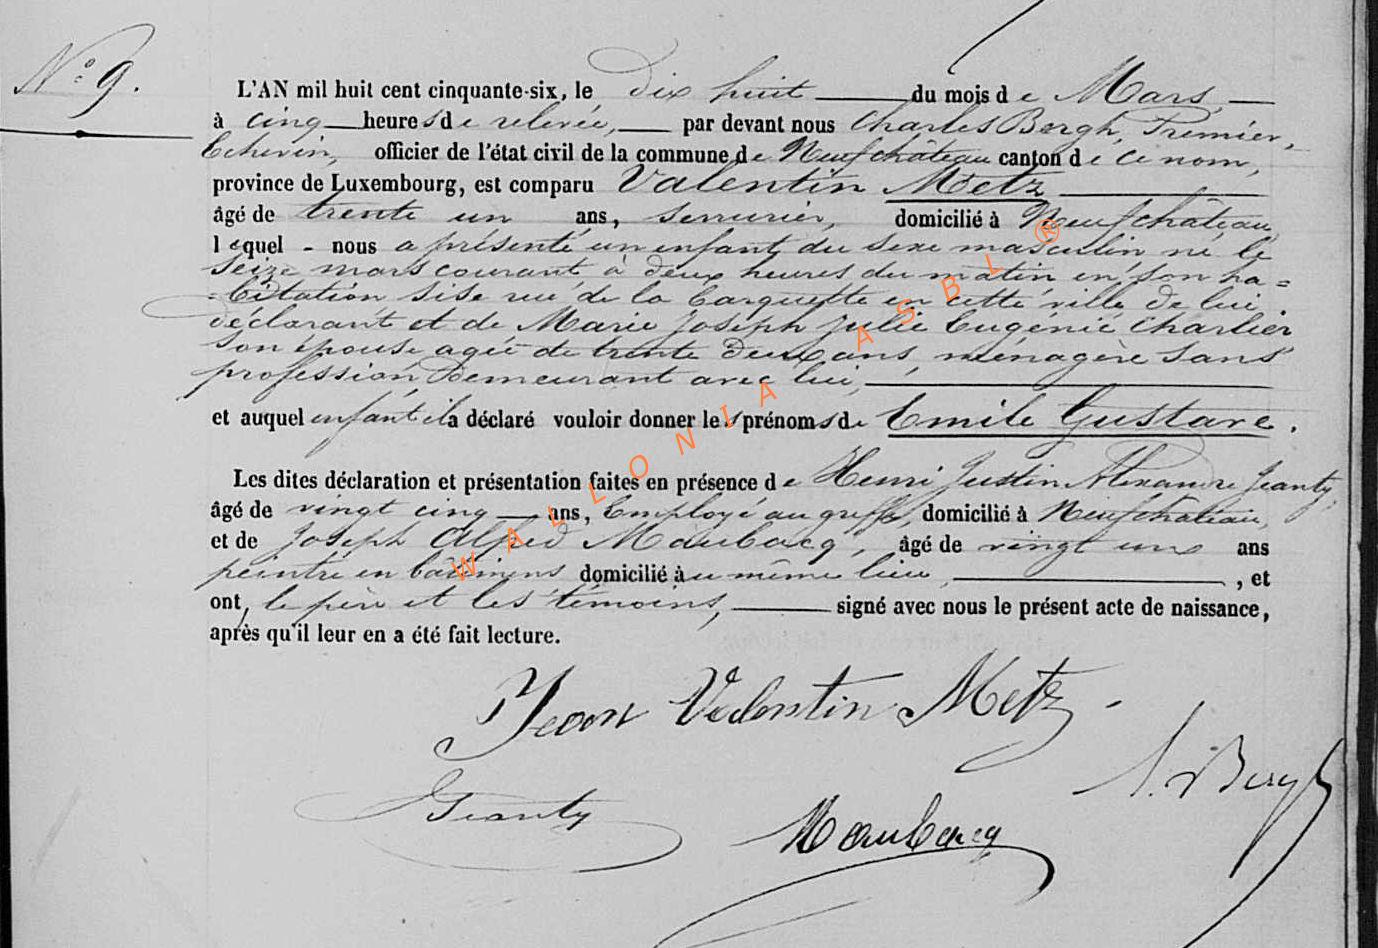 N.° 9.
L'AN mil huit cent cinquante-six, le dix huit du mois de Mars,
à cinq heures de relevée, par devant nous Charles Bergh, Premier,
Echevin, officier de l'état civil de la commune de Neufchâteau canton de ce nom,
province de Luxembourg, est comparu Valentin Metz
âgé de trente un ans, serrurier, domicilié à Neufchâteau,
lequel - nous a présenté un enfant du sexe masculin né le
seize mars courant à deux heures du matin en son ha=
=bitation sise rue de la Casquette en cette ville de lui
déclarant et de Marie Joseph Julie Eugénie Charlier
son épouse agée de trente deux ans, ménagère sans
profession, demeurant avec lui,
et auquel enfant il a déclaré vouloir donner les prénoms de Emile Gustave.
Les dites déclaration et présentation faites en présence de Henri Justin Alexandre Jeanty,
âgé de vingt cinq ans, Employé au greffe, domicilié à Neufchâteau,
et de Joseph Alfred Maubacq, âgé de vingt un ans
peintre en bâtimens domicilié au même lieu, , et
ont, le père et les témoins, signé avec nous le présent acte de naissance,
après qu'il leur en a été fait lecture.
Jean Valentin Metz.
Bergh
Jeanty
Maubacq
WALLONIA ASBL ®